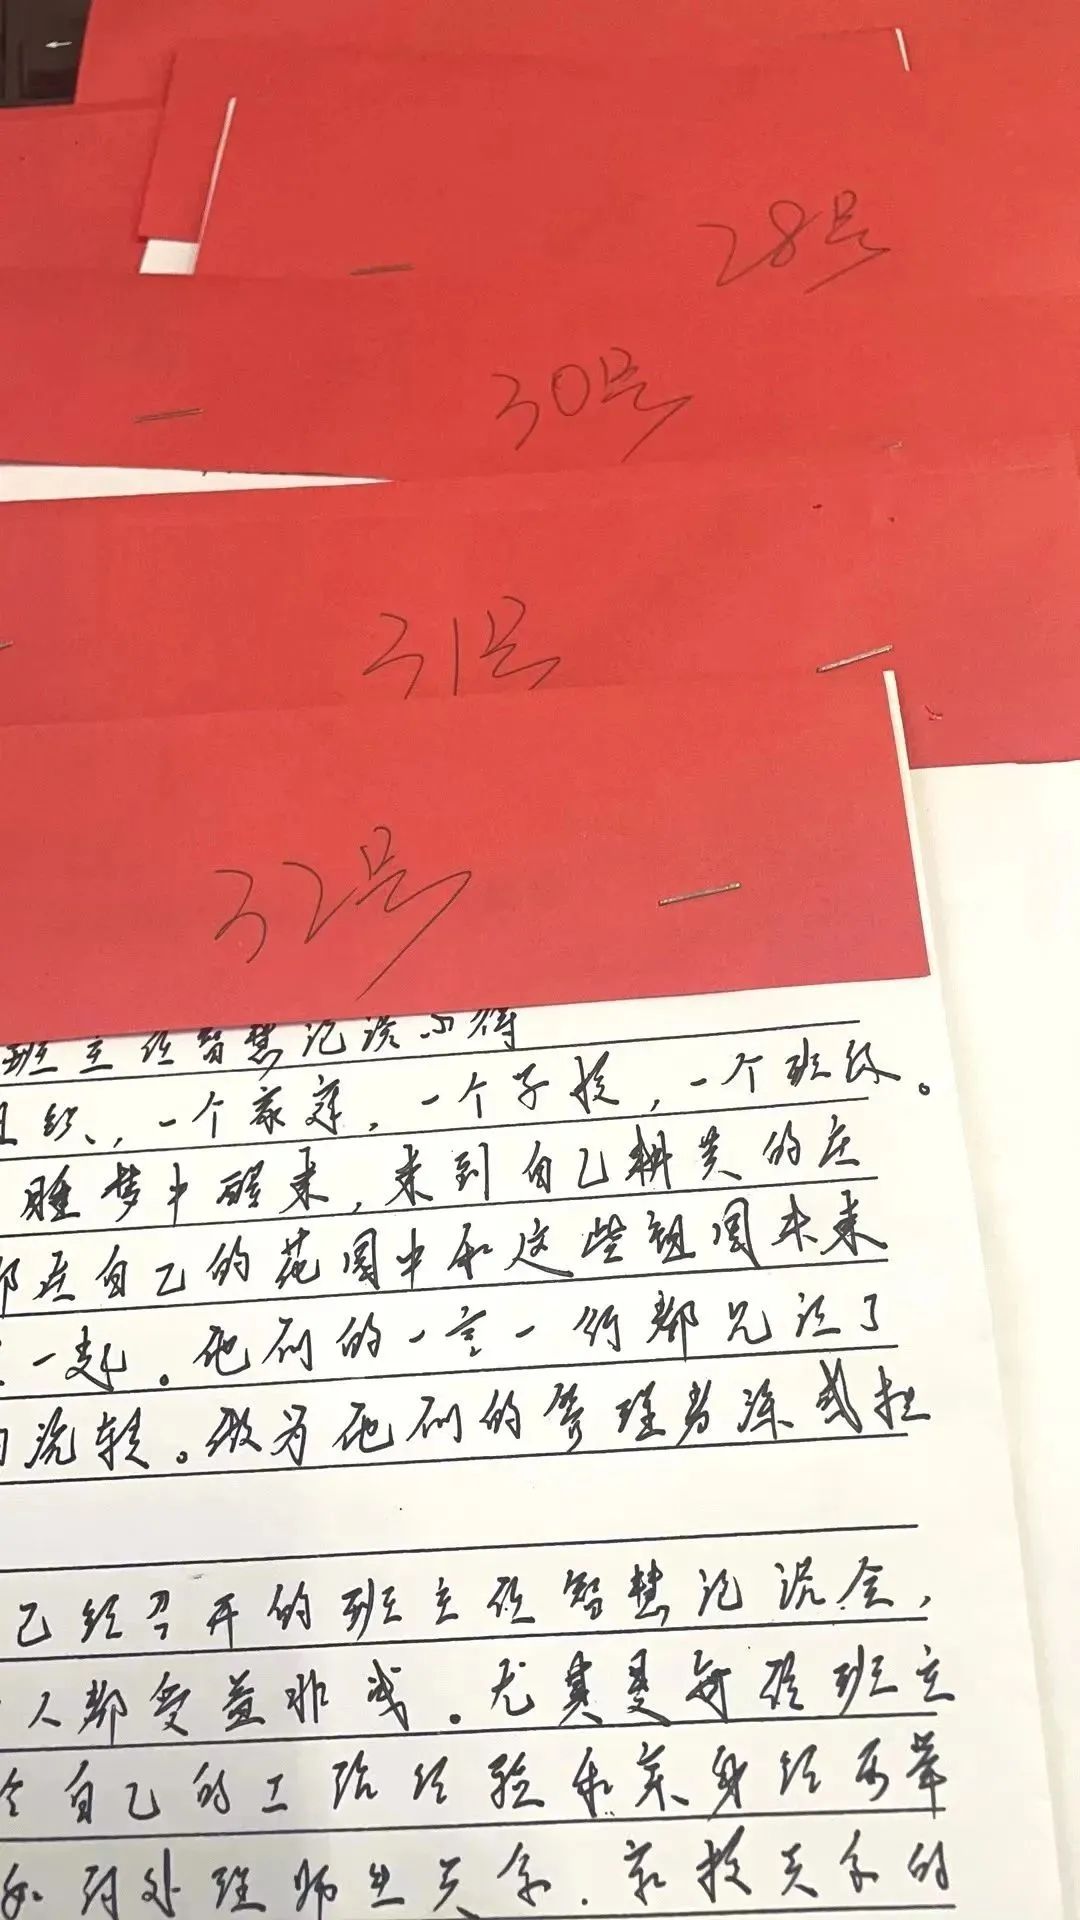 28号
30号
31号
32号
班主任智慧论谈心得
组织,一个家庭,一个学校,一个班级。
睡梦中醒来,来到自己耕耘的庄
都在自己的范围中和这些祖国未来
一起。他们的一言一行都见证了
的流转。做为他们的管理者深感担
已经召开的班主任智慧论谈会,
人都受益非浅。尤其是每位班主
合自己的工作经验和亲身经历举
如何处理师生关系.家校关系的